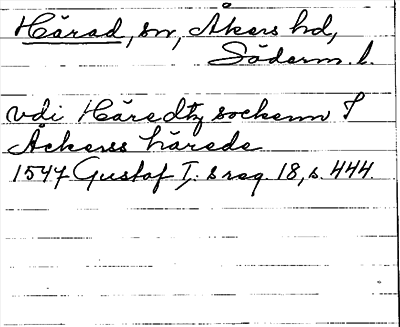 Härad, sn, Åkers hd,
Söderm. l.
vdi Häredtz sockenn I
Åckerss härede
1547 Gustaf I:s reg. 18, s. 444.